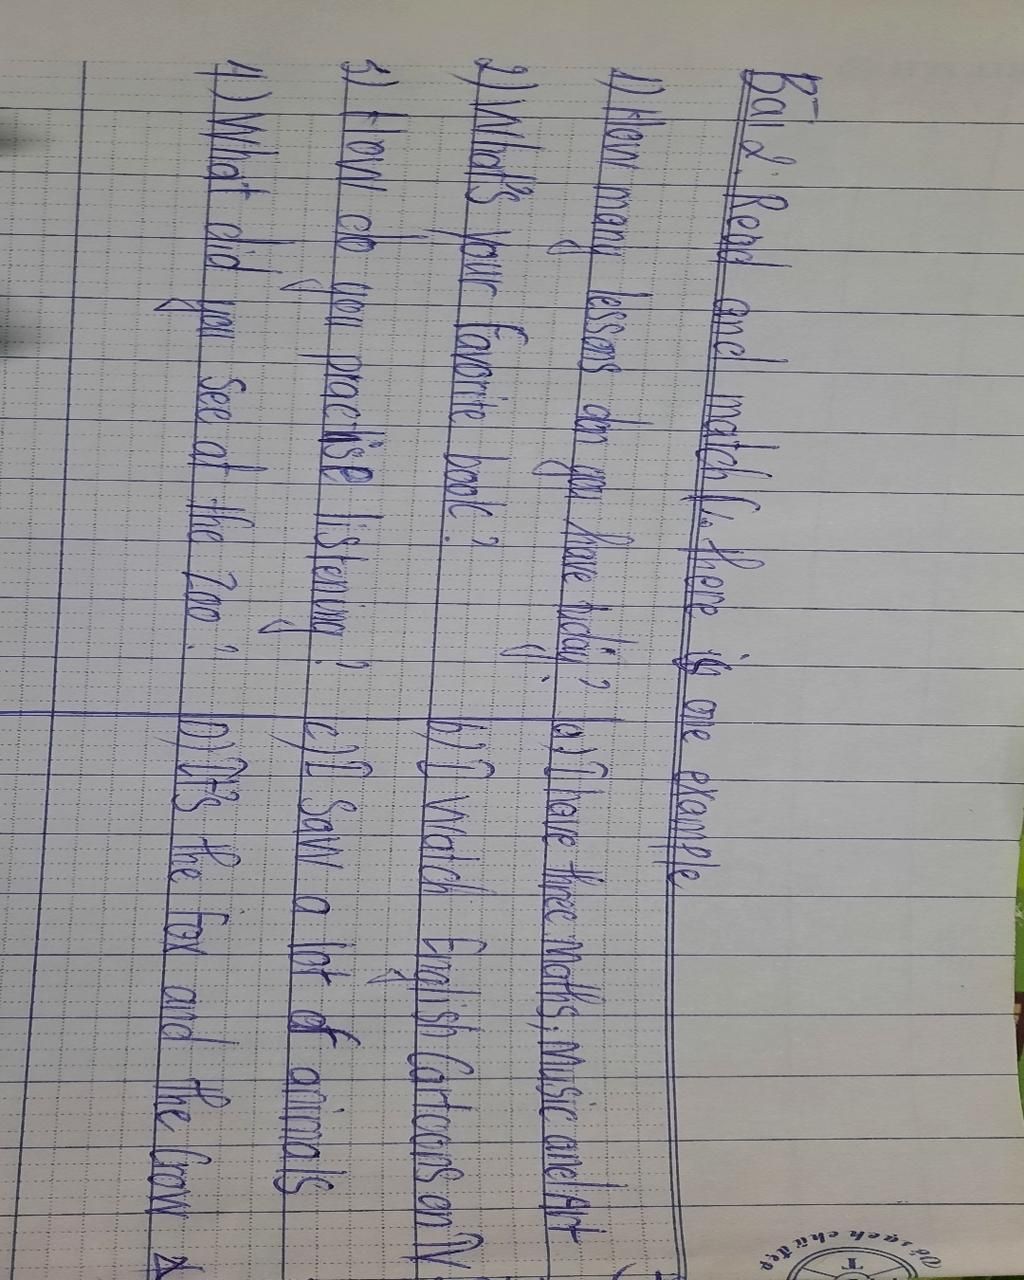 Bài 2. Read and match (. there is one example
1) How many lessons do you have today?
a) I have three Maths, Music and Art
2) What's your favorite book?
b) I watch English Cartoons on TV
3) How do you practise listening?
c) I saw a lot of animals
4) What did you see at the Zoo?
D) It's the Fox and the Crow
Vở sạch chữ đẹp